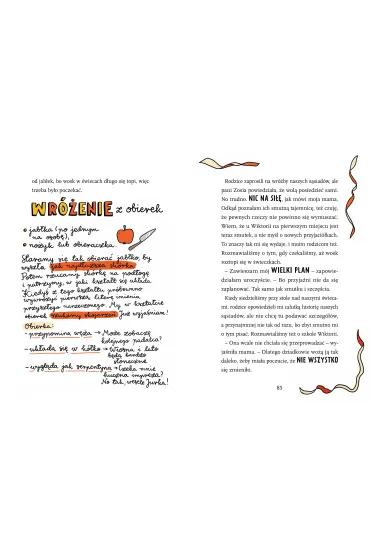 od jabłek, bo wosk w świecach długo się topi, więc
trzeba było poczekać.
WRÓŻENIE z obierek
jabłka (po jednym
na osobę),
nożyk lub obieraczka
Staramy się tak obierać jabłko, by
wyszła jak najdłuższa skórka.
Potem rzucamy skórkę na podłogę
i patrzymy, w jaki kształt się układa.
Kiedyś z tego kształtu próbowano
wywróżyć pierwszą literę imienia
przyszłego narzeczonego. My w kształcie
obierek szukamy skojarzeń. Już wyjaśniam!
Obierka:
- przypomina węża → Może zobaczę
kolejnego padalca?
- układa się w kółko → Wiosna i lato
będą bardzo
słoneczne
- wygląda jak serpentyna → Czeka mnie
huczna impreza?
No tak, wesele Jurka!
Rodzice zaprosili na wróżby naszych sąsiadów, ale
pani Zosia powiedziała, że wolą posiedzieć sami.
No trudno. NIC NA SIŁĘ, jak mówi moja mama.
Odkąd poznałam ich smutną tajemnicę, też czuję,
że pewnych rzeczy nie powinno się wymuszać.
Wiem, że u Wiktorii na pierwszym miejscu jest
teraz smutek, a nie myśl o nowych przyjaciółkach.
To znaczy tak mi się wydaje, i moim rodzicom też.
Rozmawialiśmy o tym, gdy czekaliśmy, aż wosk
roztopi się w świeczkach.
– Zawieszam mój WIELKI PLAN – zapowie-
działam uroczyście. – Bo przyjaźni nie da się
zaplanować. Tak samo jak smutku i szczęścia.
Kiedy siedzieliśmy przy stole nad naszymi świeca-
mi, rodzice opowiedzieli mi całutką historię naszych
sąsiadów, ale nie chcę tu podawać szczegółów,
a przynajmniej nie tak od razu, bo zbyt smutno mi
o tym pisać. Rozmawialiśmy też o szkole Wiktorii.
– Ona wcale nie chciała się przeprowadzać – wy-
jaśniła mama. – Dlatego dziadkowie wożą ją tak
daleko, żeby miała poczucie, że NIE WSZYSTKO
się zmieniło.
83